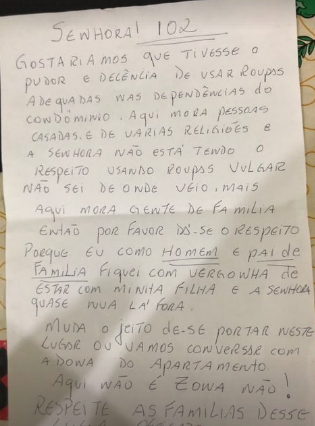 SENHORA! 102
GOSTARIAMOS QUE TIVESSE O
PUDOR E DECÊNCIA DE USAR ROUPAS
ADEQUADAS NAS DEPENDÊNCIAS do
CONDOMINIO. AQUI MORA PESSOAS
CASADAS. E DE VARIAS RELIGIÕES E
A SENHORA NÃO ESTÁ TENDO O
RESPEITO USANDO ROUPAS VULGAR
NÃO SEI DE ONDE VEIO, MAIS
AQUI MORA GENTE DE FAMILIA
ENTÃO POR FAVOR DÊ-SE O RESPEITO
PORQUE EU COMO HOMEM E PAI DE
FAMILIA FIQUEI COM VERGONHA DE
ESTAR COM MINHA FILHA E A SENHORA
QUASE NUA LÁ FORA.
MUDA O JEITO DE-SE PORTAR NESTE
LUGAR OU VAMOS CONVERSAR COM
A DONA DO APARTAMENTO
AQUI NÃO É ZONA NÃO!
RESPEITE AS FAMILIAS DESSE